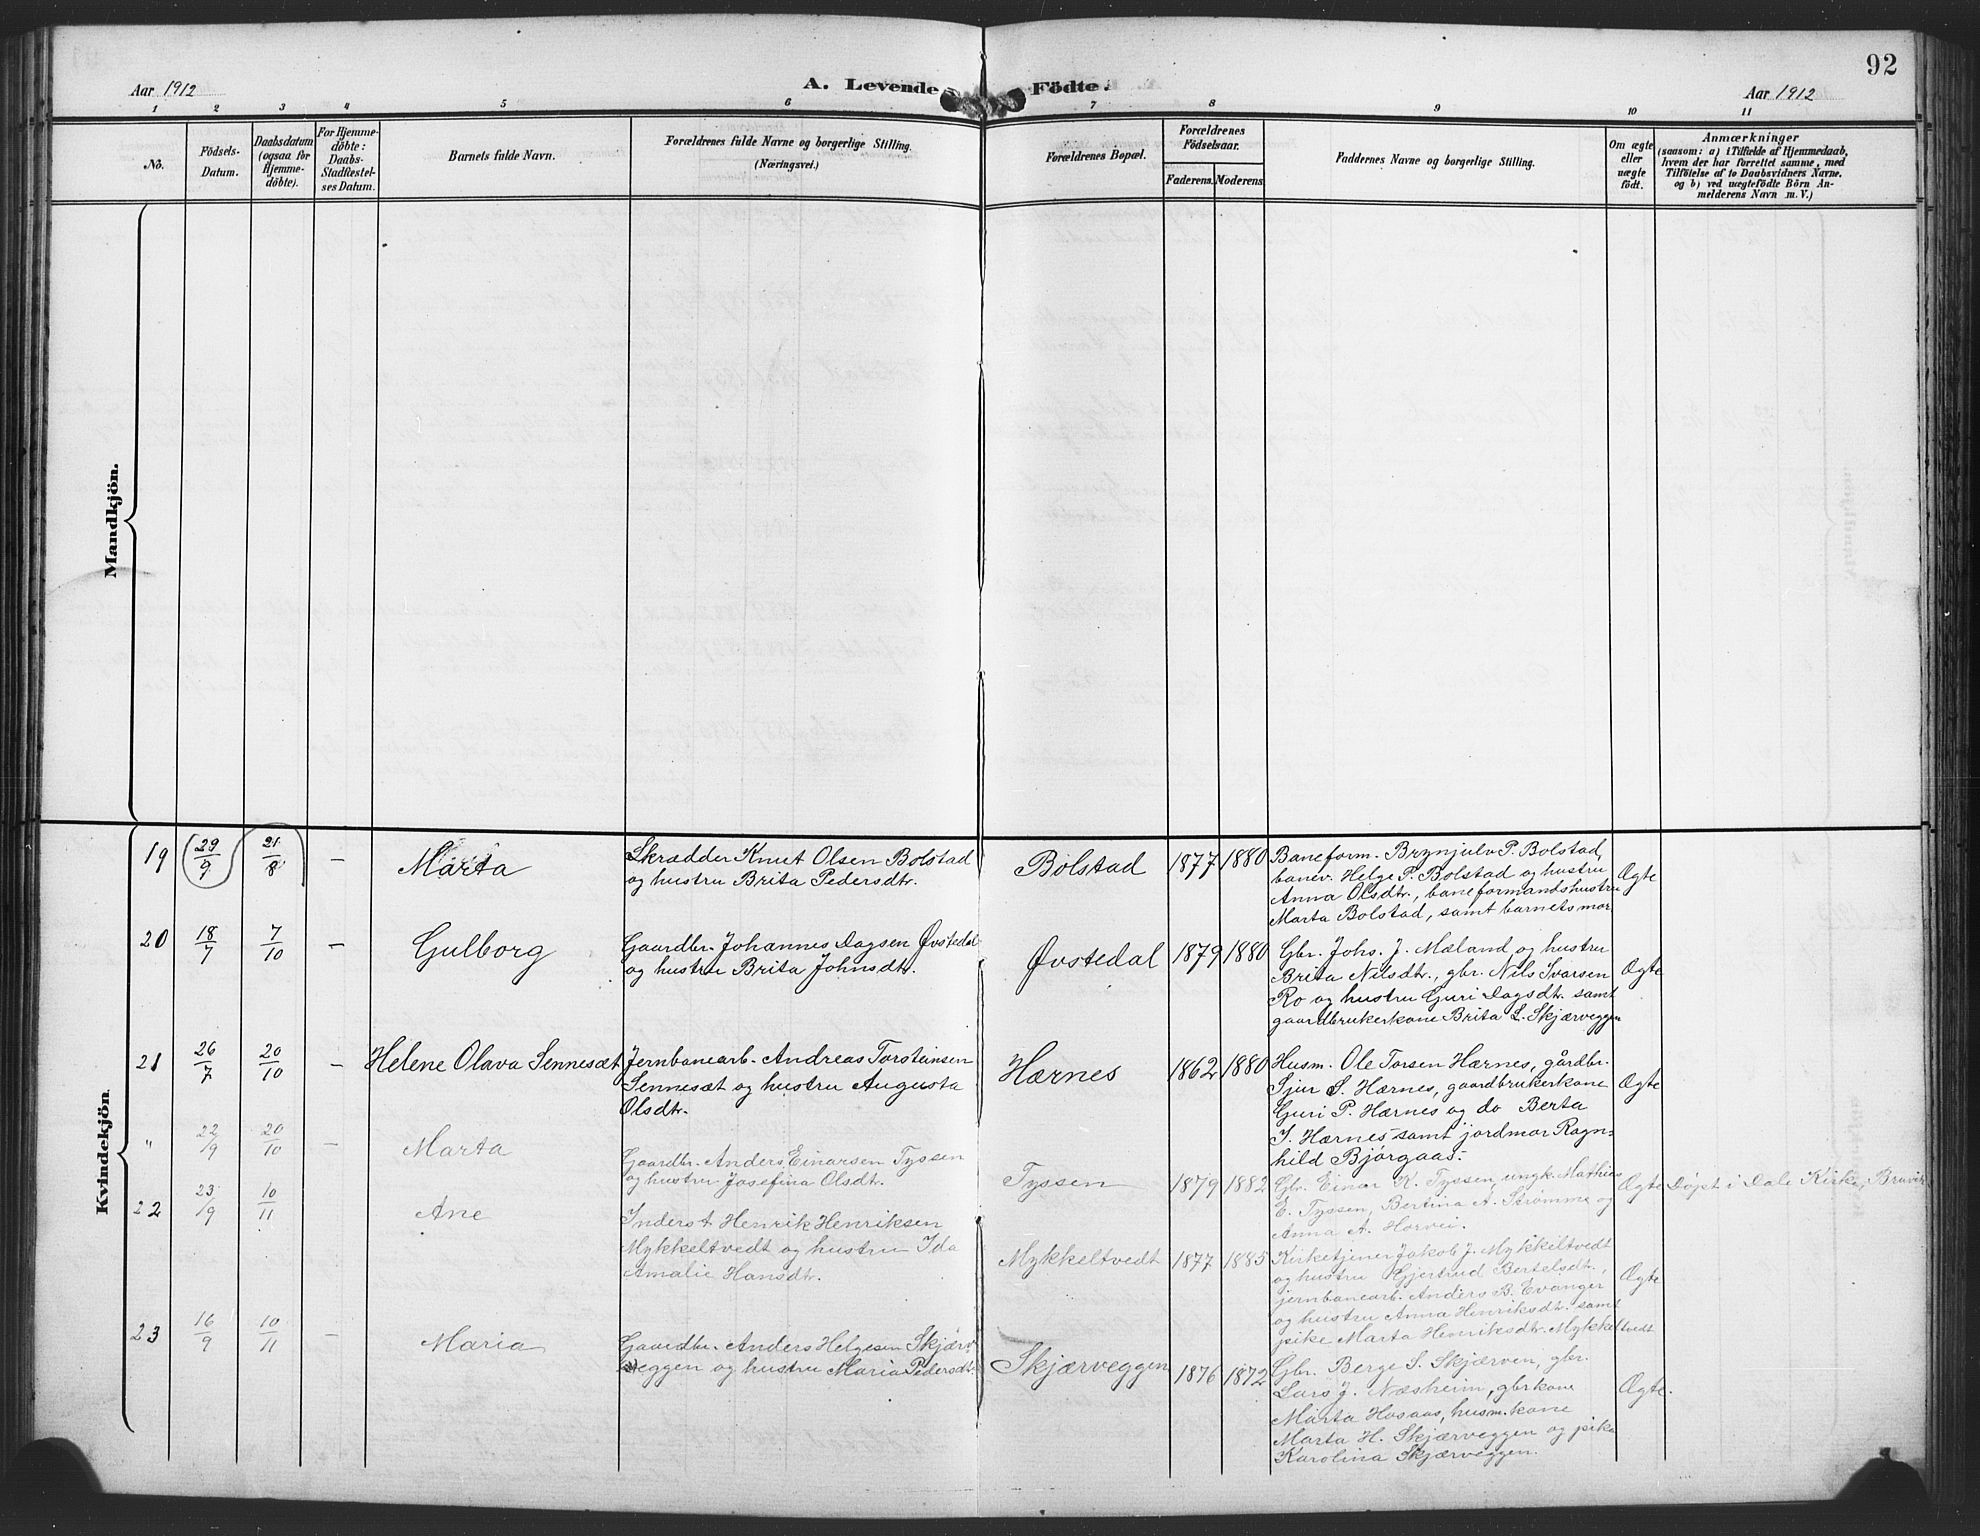 92
Aar 1912
A. Levende Födte.
Aar 1912
1 2 3 4 5 6 7 8 9 10 11
No.
Födsels-
Datum.
Daabsdatum
(ogsaa for
Hjemme-
döbte).
For Hjemme-
döbte:
Daabs-
Stadfæstel-
ses Datum.
Barnets fulde Navn.
Forældrenes fulde Navne og borgerlige Stilling.
(Næringsvei.)
Forældrenes Bopæl.
Forældrenes
Födselsaar.
Faderens. Moderens.
Faddernes Navne og borgerlige Stilling.
Om ægte
eller
uægte
födt.
Anmærkninger
(saasom: a) i Tilfælde af Hjemmedaab,
hvem der har forrettet samme, med
Tilföielse af to Daabsvidners Navne,
og b) ved uægtefödte Börn An-
melderens Navn m. V.)
Mandkjön.
Kvindekjön.
19 29/9 21/8 — Marta
Skrædder Knut Olsen Bolstad
og hustru Brita Pedersdtr.
Bolstad 1877 1880
Baneform. Brynjulv P. Bolstad,
banev. Helge P. Bolstad og hustru
Anna Olsdtr., baneformandshustru
Marta Bolstad, samt barnets mor
Ægte
20 18/7 7/10 — Gulborg
Gaardbr. Johannes Dagsen Øvstedal
og hustru Brita Johnsdtr.
Øvstedal 1879 1880
Gbr. Johs. J. Mæland og hustru
Brita Nilsdtr., gbr. Nils Ivarsen
Ro og hustru Guri Dagsdtr. samt
gaardbrukerkone Brita L. Skjærveggen
Ægte
21 26/7 20/10 — Helene Olava Sennesæt
Jernbanearb. Andreas Torsteinsen
Sennesæt og hustru Augusta
Olsdtr.
Hærnes 1862 1880
Husm. Ole Torsen Hærnes, gårdbr.
Sjur S. Hærnes, gaardbrukerkone
Guri P. Hærnes og do Berta
I. Hærnes samt jordmor Ragn-
hild Bjørgaas.
Ægte
" 22/9 20/10 — Marta
Gaardbr. Anders Einarsen Tyssen
og hustru Josefina Olsdtr.
Tyssen 1879 1882
Gbr. Einar K. Tyssen, ungk. Mathias
E. Tyssen, Bertina A. Strømme og
Anna A. Horvei.
Ægte
Døpt i Dale Kirke, Bruvik
22 23/9 10/11 Ane
Inderst Henrik Henriksen
Mykkeltvedt og hustru Ida
Amalie Hansdtr.
Mykkeltvedt 1877 1885
Kirketjener Jakob J. Mykkeltvedt
og hustru Gjertrud Bertelsdtr.,
jernbanearb. Anders B. Evanger
og hustru Anna Henriksdtr. samt
pike Marta Henriksdtr. Mykkeltvedt
Ægte
23 16/9 10/11 — Maria
Gaardbr. Anders Helgesen Skjærv-
eggen og hustru Maria Pedersdtr.
Skjærveggen 1876 1872
Gbr. Berge S. Skjærven, gbr.
Lars J. Næsheim, gbrkone
Marta Hosaas, husm.kone
Marta H. Skjærveggen og pike
Karolina Skjærveggen.
Ægte.